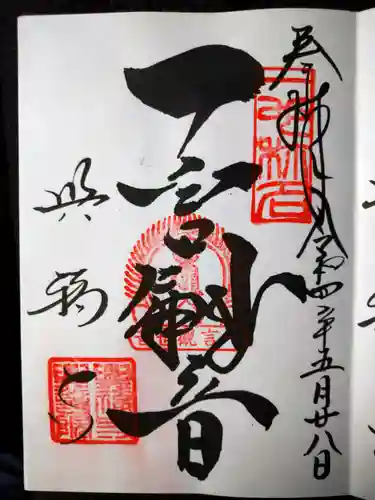 奉拝 令和四年五月廿八日
一言観音
興福寺